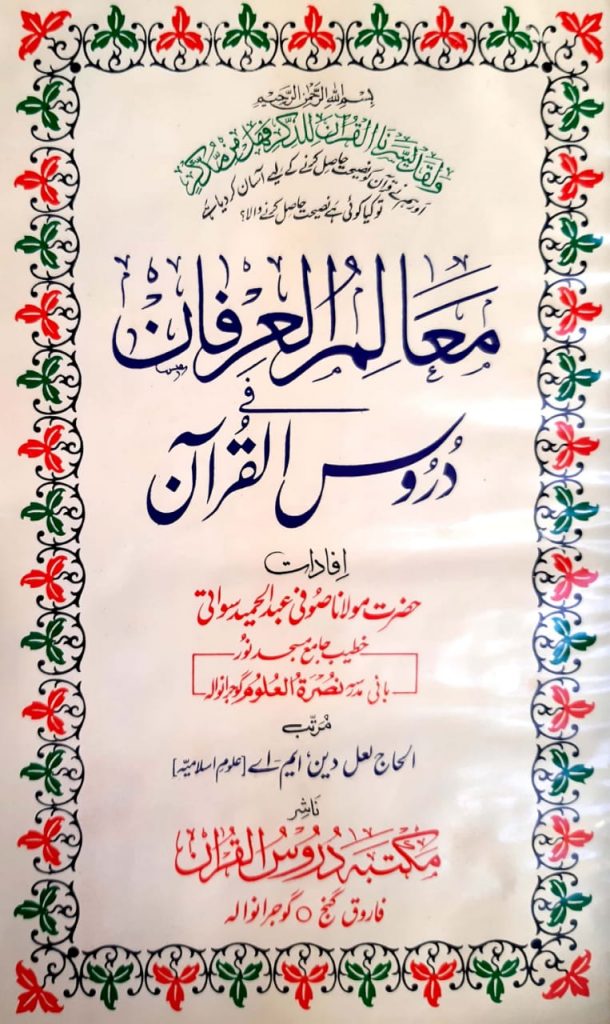 بِسْمِ اللهِ الرَّحْمٰنِ الرَّحِيْمِ
وَلَقَدْ يَسَّرْنَا الْقُرْآنَ لِلذِّكْرِ فَهَلْ مِنْ مُّدَّكِرٍ
اور ہم نے قرآن کو نصیحت حاصل کرنے کے لیے آسان کر دیا ہے
تو کیا کوئی ہے نصیحت حاصل کرنے والا؟
مَعَالِمُ الْعِرْفَان
فی
دُرُوس الْقُرْآن
اِفادات
حضرت مولانا صوفی عبدالحمید سواتی
خطیب جامع مسجد نور
بانی مدرسہ نُصْرَةُ الْعُلُوم گوجرانوالہ
مُرتّب
الحاج لعل دین، ایم-اے [علومِ اسلامیہ]
ناشر
مکتبہ دُرُوسُ الْقُرْآن
فاروق گنج ○ گوجرانوالہ